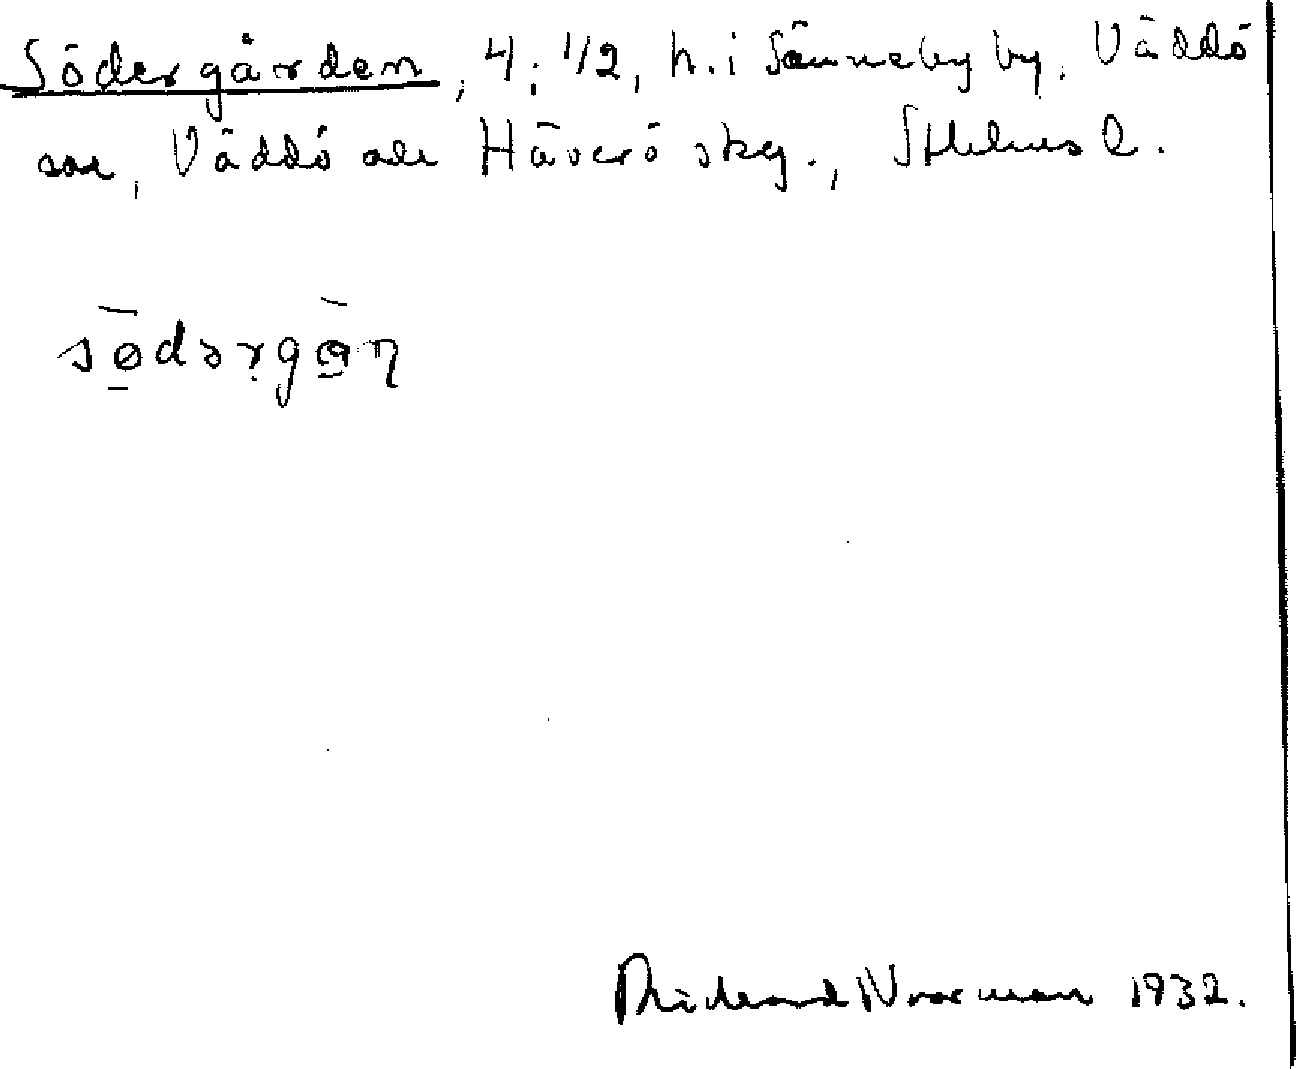 Södergården, 4:1/2, h. i Sämneby by, Väddö
sn, Väddö och Häverö skg., Sthlms l.
södərgɷ̄ɳ
Rickard Norrman 1932.